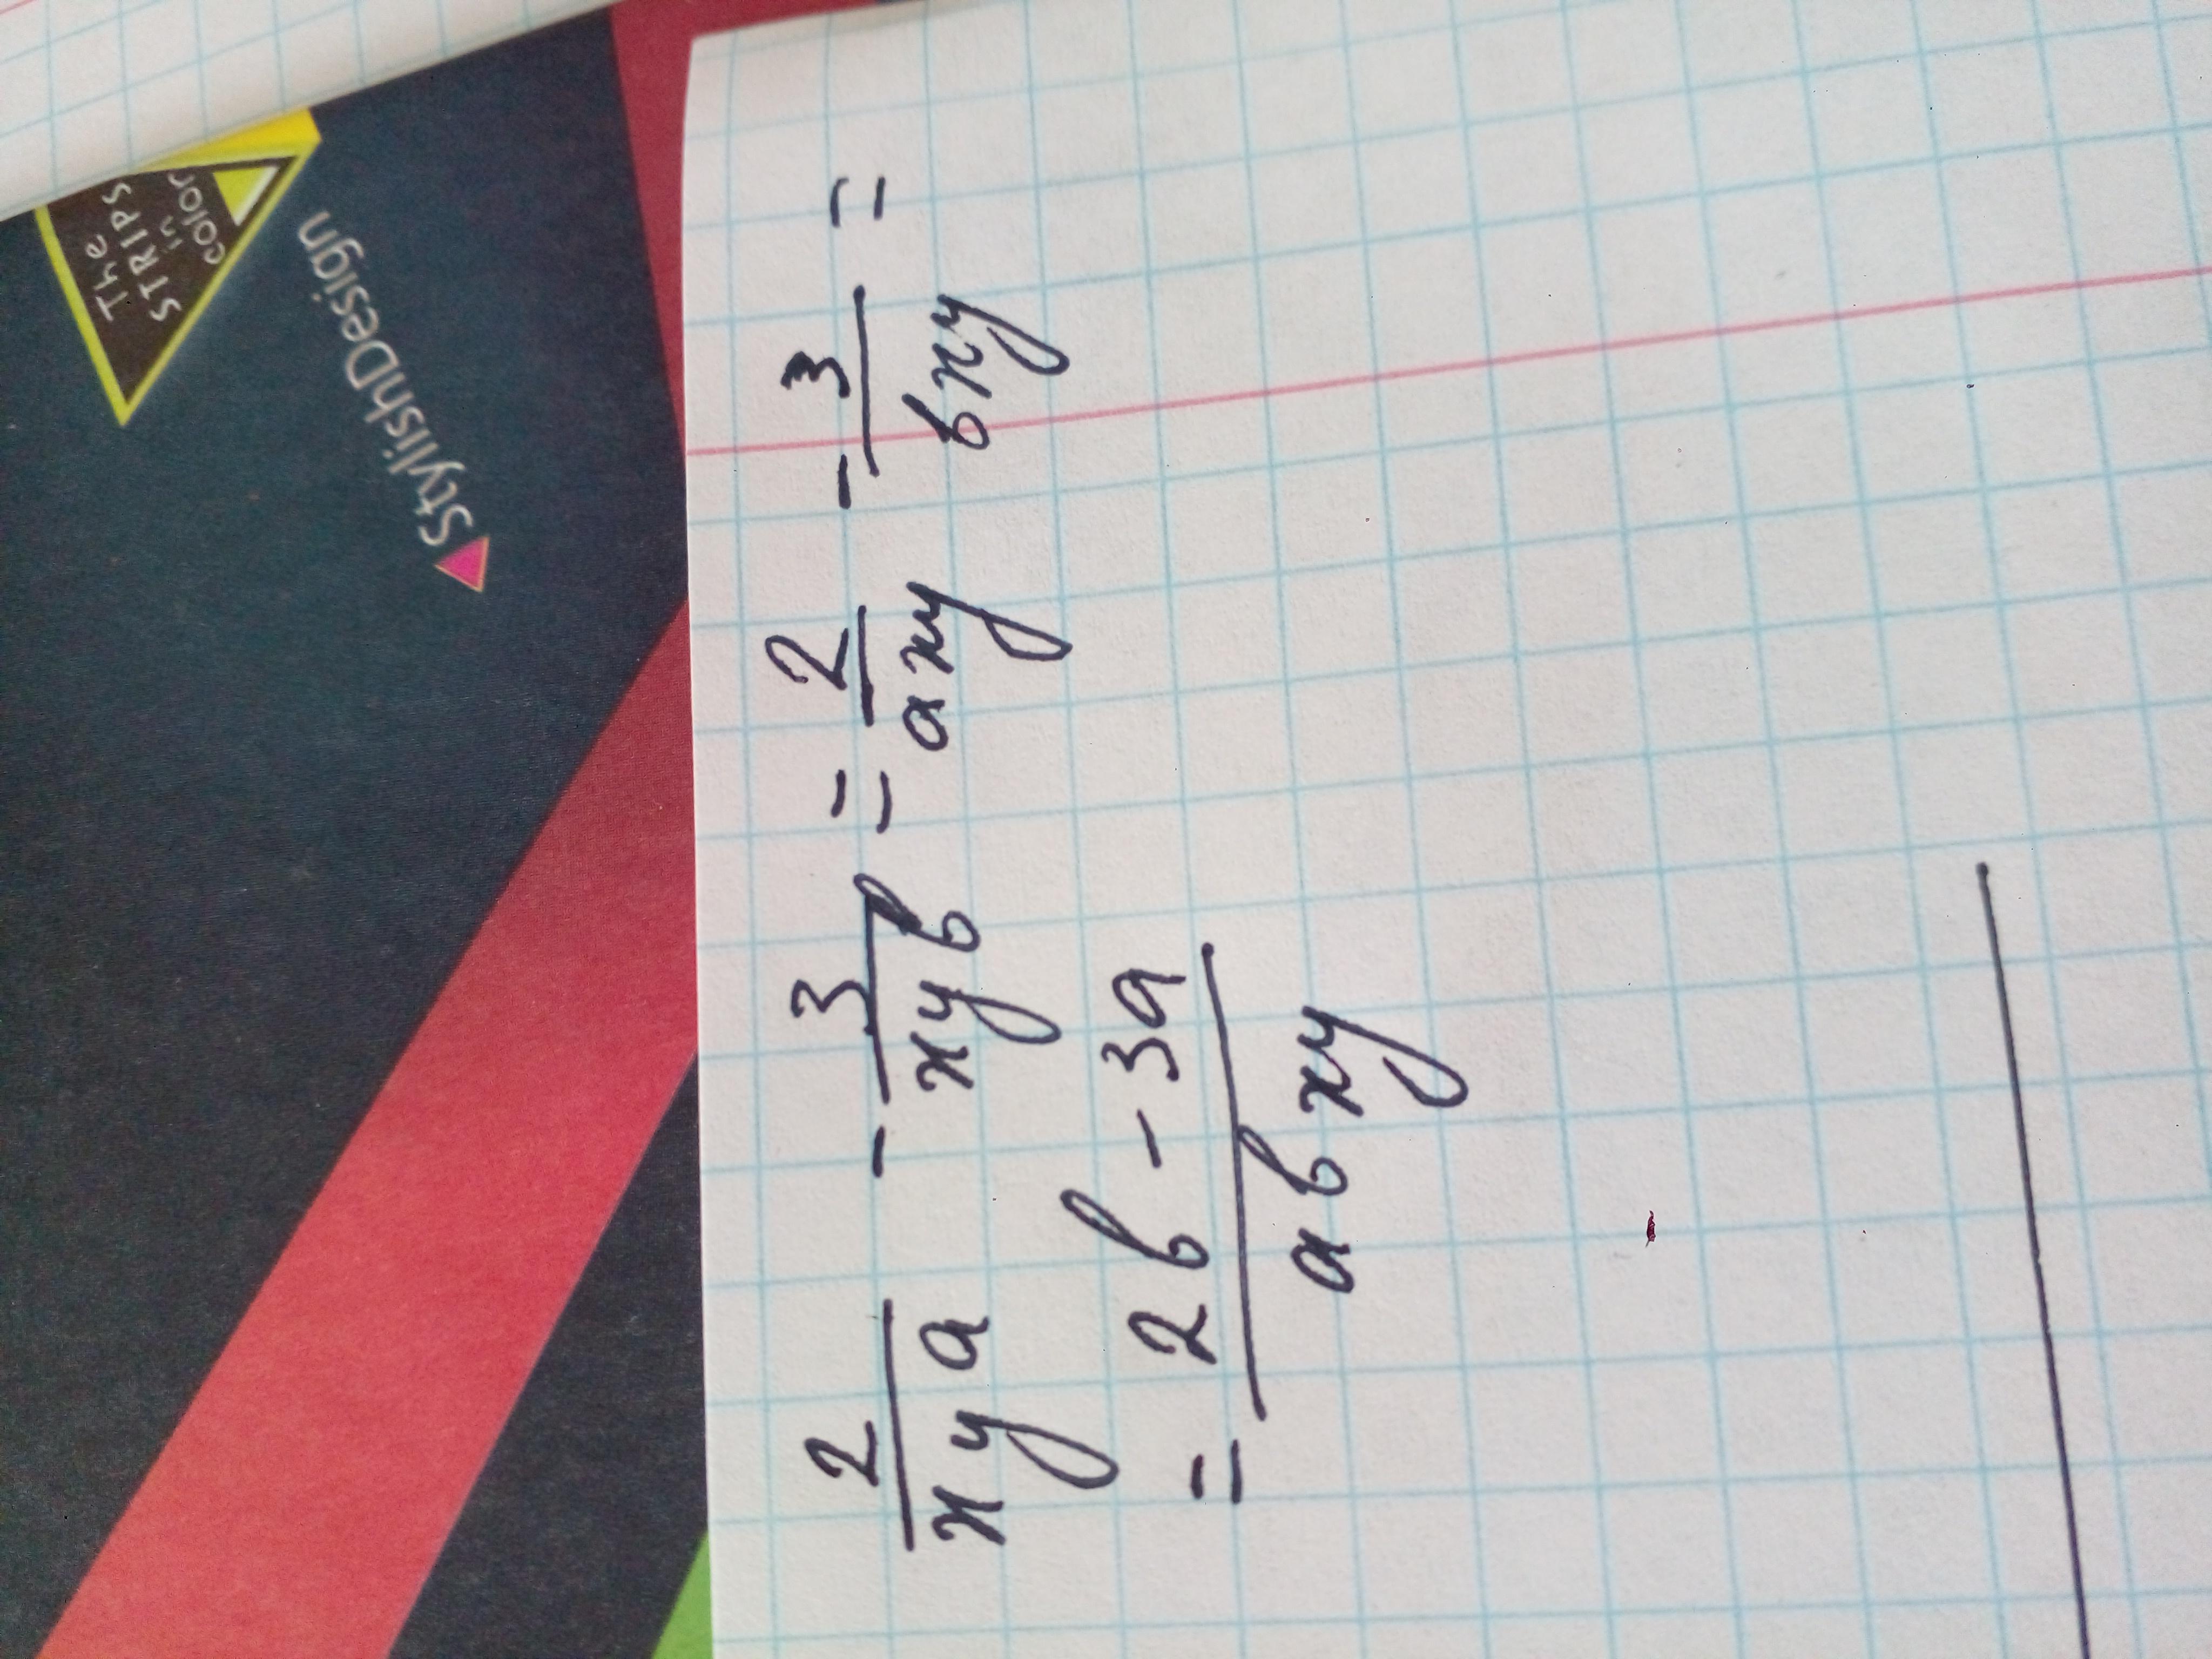 The
STRIPS
in
color
StylishDesign
2/xya - 3/xyb = 2/axy - 3/bxy =
= 2b - 3a/abxy